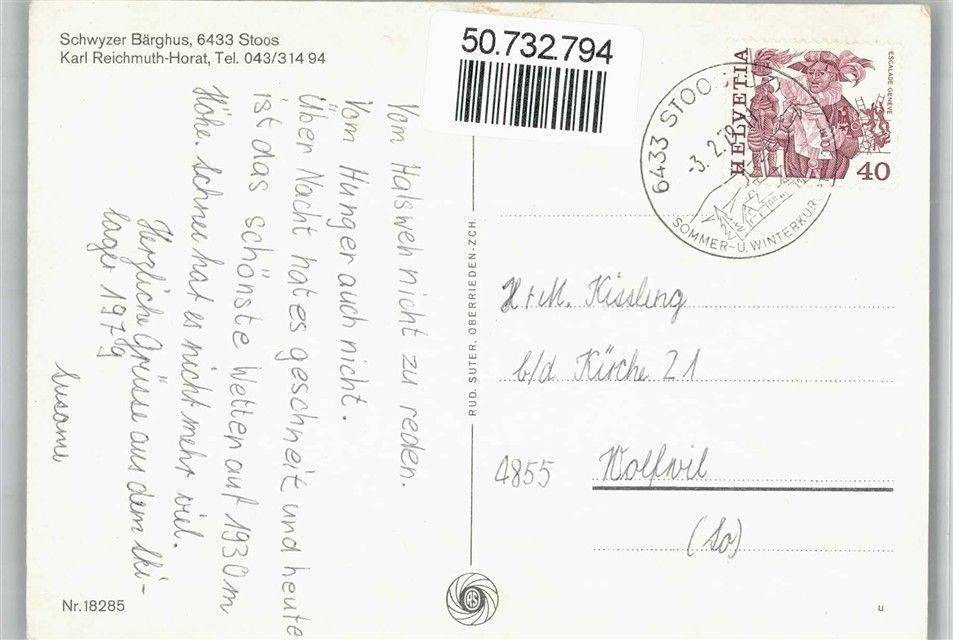 Schwyzer Bärghus, 6433 Stoos
Karl Reichmuth-Horat, Tel. 043/314 94
50.732.794
HELVETIA
ESCALADE GENÈVE
40
6433 STOO
-3. 2. 79
SOMMER-U. WINTERKUR
Vom Halsweh nicht zu reden.
Vom Hunger auch nicht.
Über Nacht hat es geschneit und heute
ist das schönste Wetter auf 1930 m
Höhe. Schnee hat es nicht mehr viel.
Herzliche Grüsse aus dem Ski-
lager 1979
Susanne
RUD. SUTER, OBERRIEDEN-ZCH.
H+M. Kissling
b/d Kirche 21
4855 Wolfwil
(So)
Nr. 18285
u